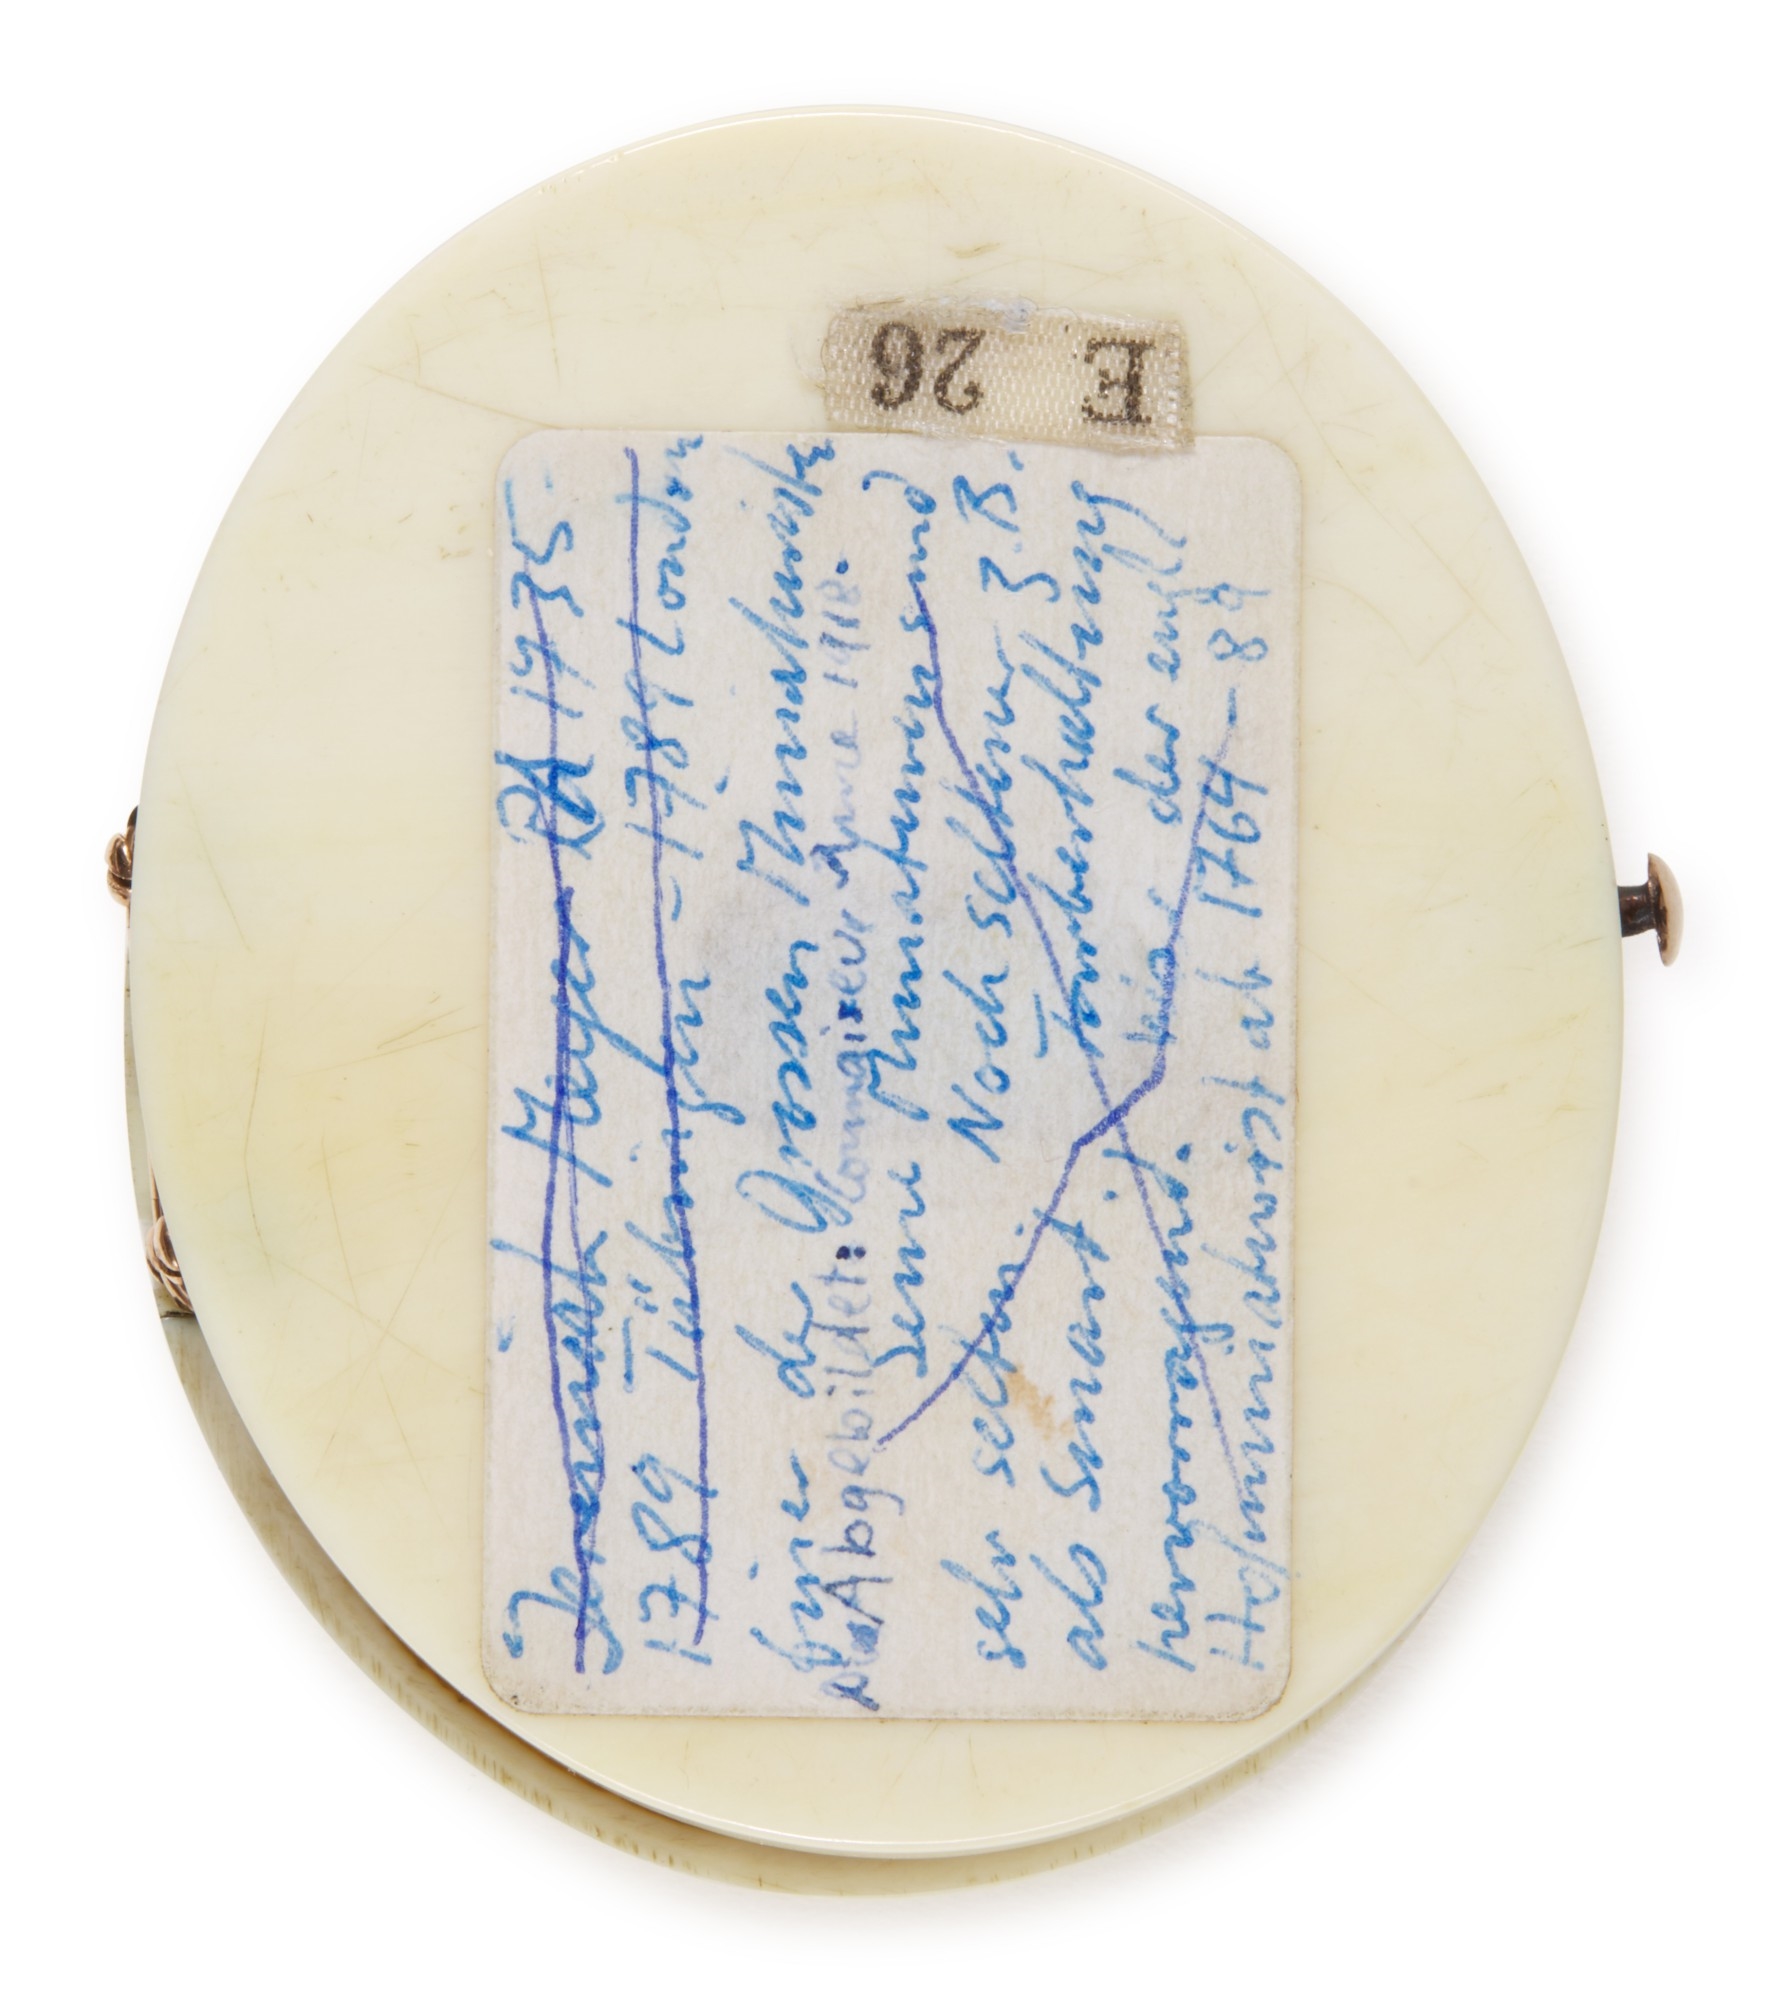 E 26
Jeremiah Meyer RA 1735
1789 Tübingen - 1789 London
Einer der Grossen Miniaturisten
Abgebildet: Connoisseur June 1918.
Seine Miniaturen sind
sehr selten. Noch seltener z.B.
als Smart. Farberhaltung
hervorragend. der engl
Hofminiaturist at 1764 - 89